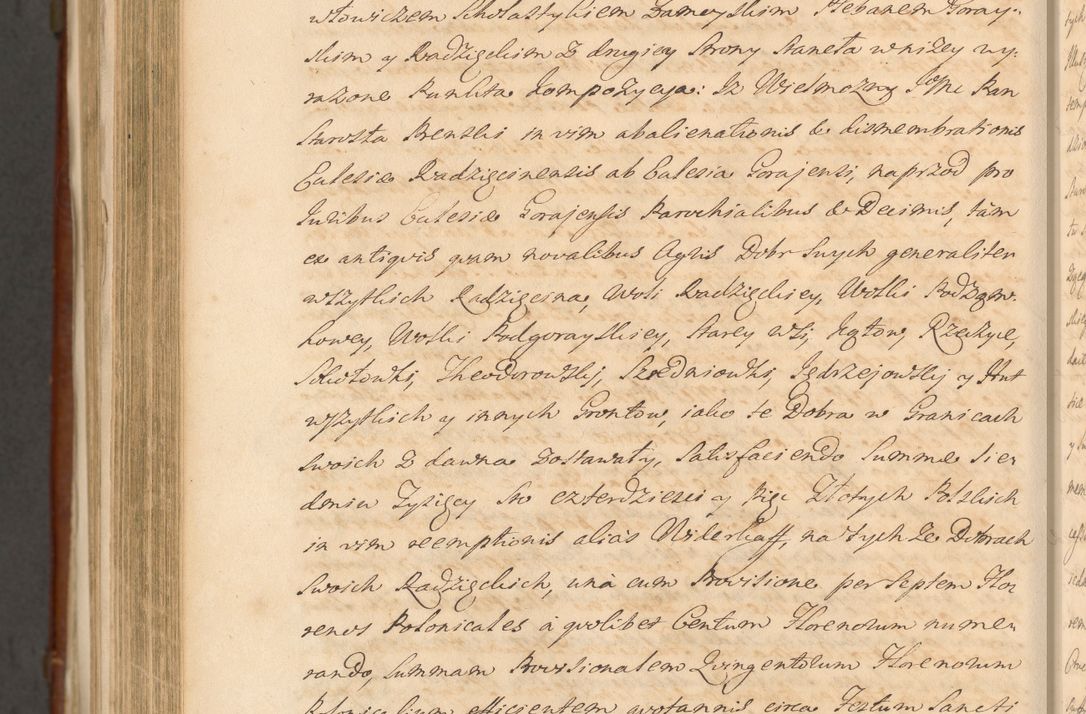 włowiczem Scholastykiem Zamoyskim Plebanem Goray-
skim y Radzięckim z drugiey strony staneła w niżey wy-
rażone Punkta kompozycya: Iz Wielmożny JMć Pan
Starosta Brenski in vim abalienationis & dismembrationis
Eclesiæ Radziecinensis ab Eclesia Gorajensi, naprzód pro
Iuribus Eclesiæ Gorajensis Parochialibus & Decimis, tàm
ex antiqvis qvam novalibus Agris Dobr Swych generaliter
wszystkich Radziecina, Woli Radzięckiey, Wolki Podzam-
kowey, Wolki Podgorayskiey, Starey wsi, Kątow, Rzeczyc,
Sokołowki, Theodorowskiej, Szredniowki, Jędrzejowskiej y Hut
wszystkich y innych Grontow, iako te Dobra w Granicach
swoich z dawna zostawały, Satisfaciendo Summe Sie-
dmiu Tysięcy Sto czterdziesci y Pięć Złotych Polskich
in vim reemptionis alias Widerkaff, na tych że Dobrach
swoich Radzięckich, unà cum Provisione per Septem Flo-
renos Polonicales à qvolibet Centum Florenorum nume-
rando, Summam Provisionalem Qvingentorum Florenorum
Polonicalium efficientem qvotannis circa Festum Sancti